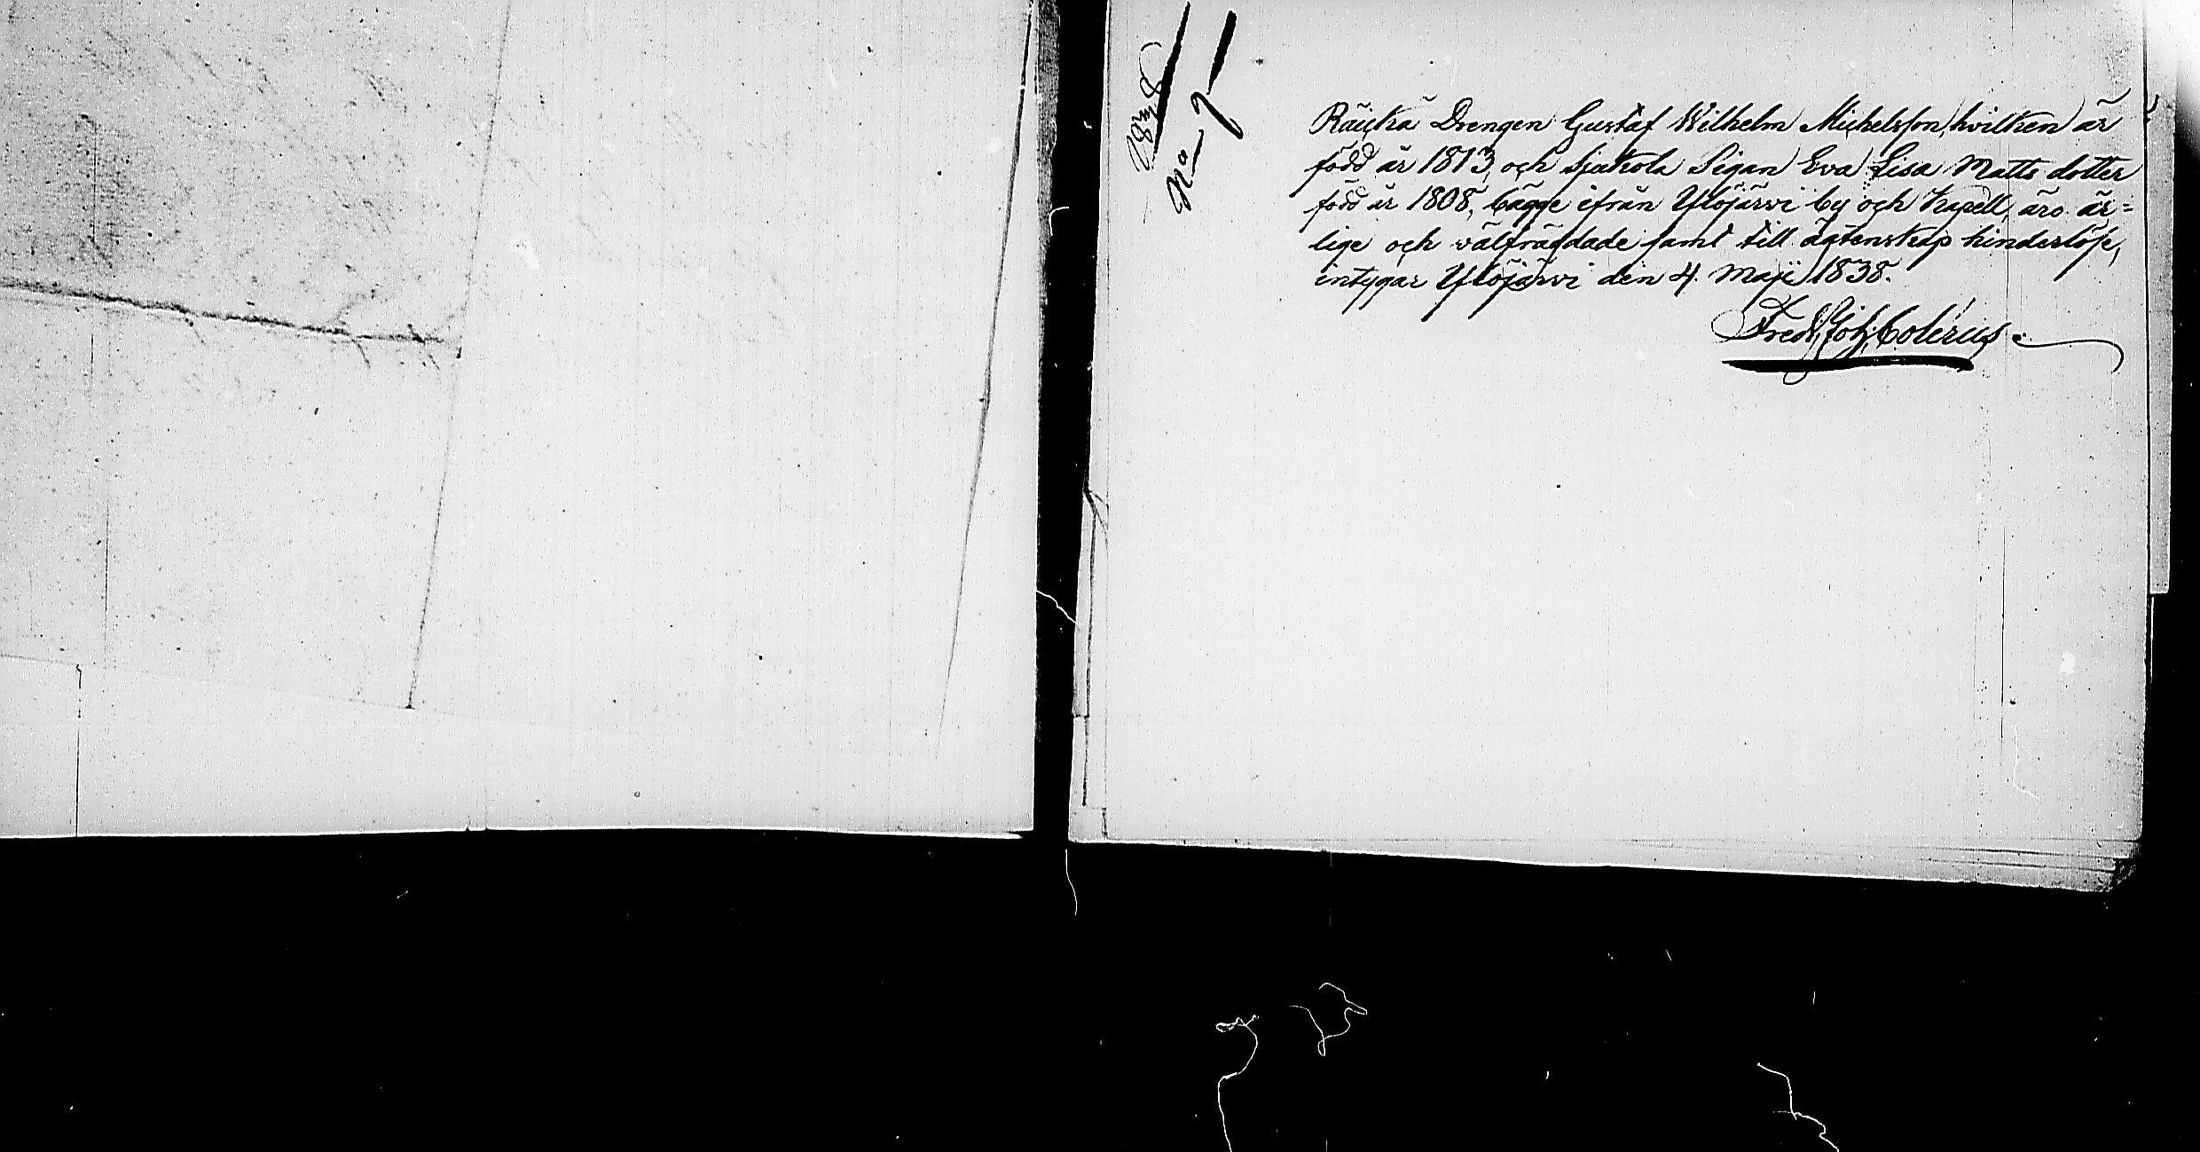 1838
No 7
Räikkä Drengen Gustaf Wilhelm Michelsson, hvilken är
född år 1813, och Sjukola Pigan Eva Lisa Matts dotter
född år 1808, bägge ifrån Ylöjärvi by och Kapell, äro är=
lige och välfrägdade samt till ägtenskap hinderlöse,
intygar Ylöjärvi den 4. Maji 1838.
Fredr. Joh. Colérus.